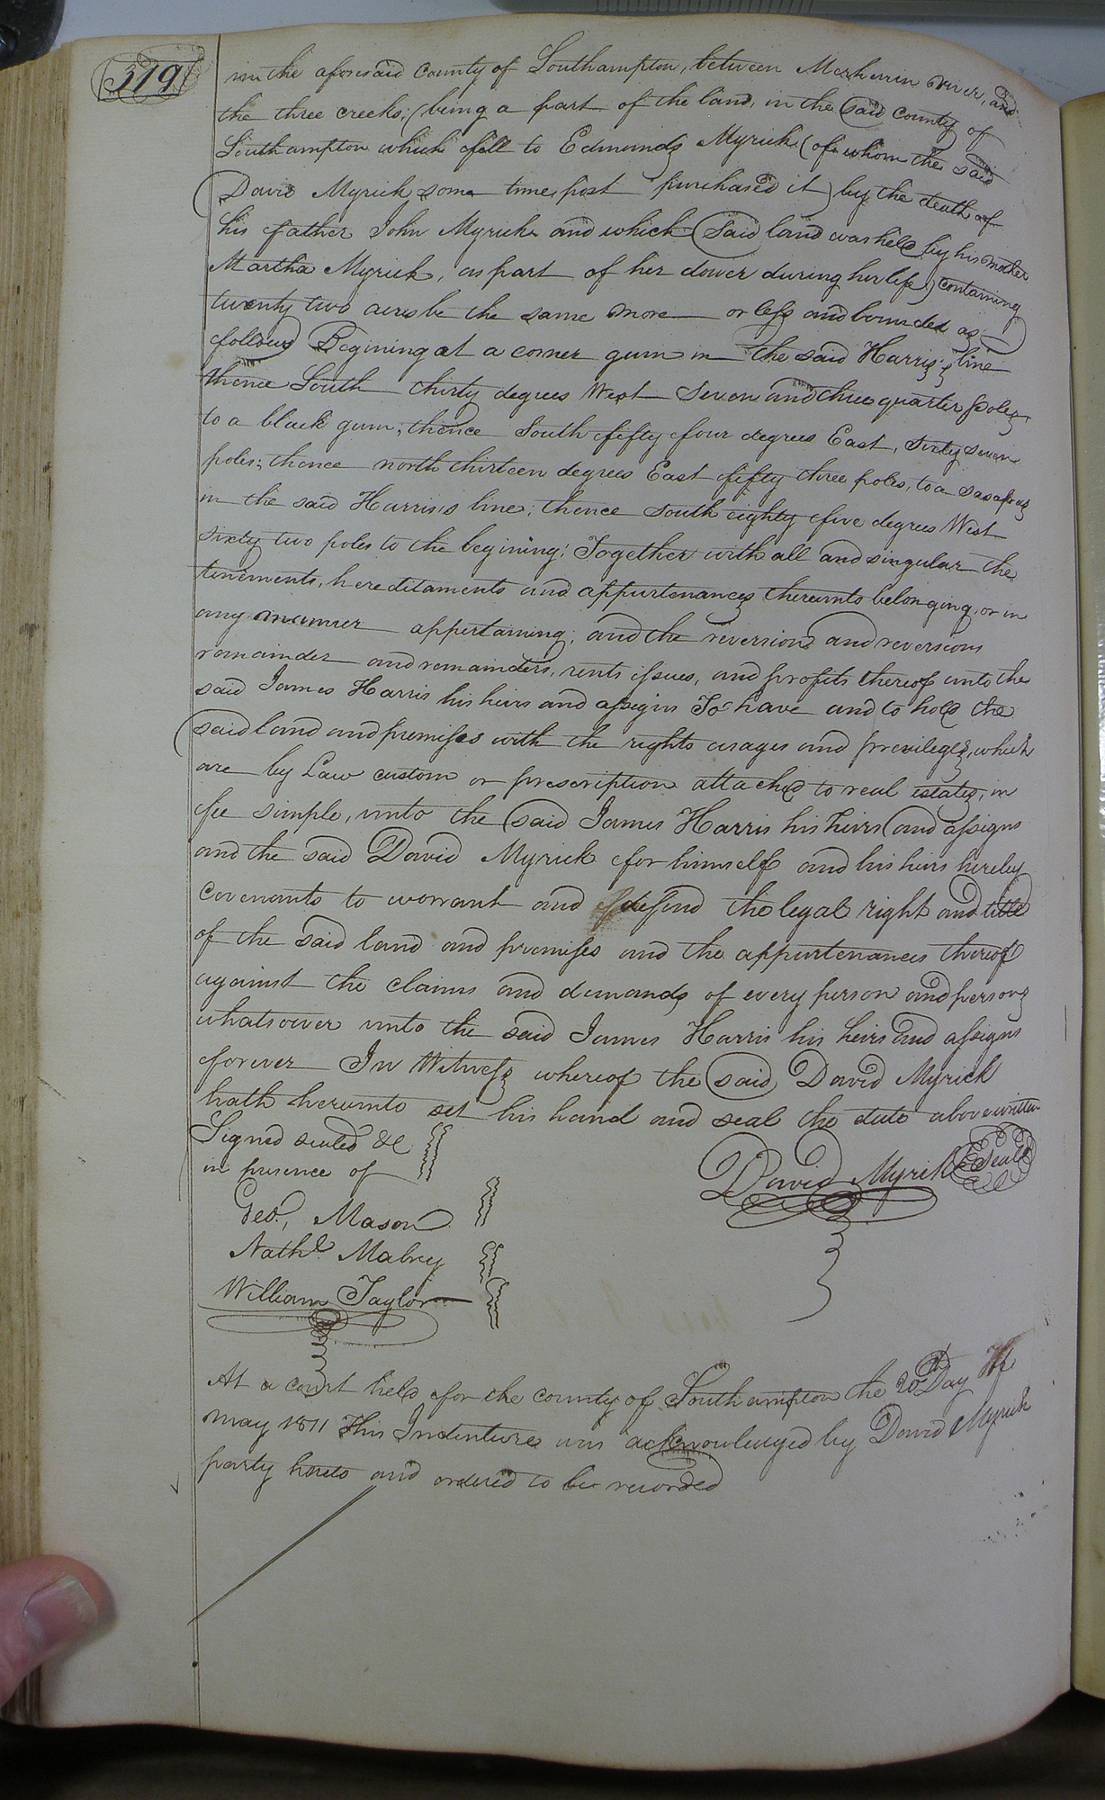 319
in the aforesaid County of Southampton, between Meherrin river, and
the three creeks; (being a part of the land, in the said County of
Southampton which fell to Edmunds Myrick (of whom the said
David Myrick some time post purchased it) by the death of
his father John Myrick and which said land was held by his mother
Martha Myrick, as part of her dower during her life) containing
twenty two acres be the same more or less and bounded as
follows Begining at a corner gum in the said Harris's line
thence South thirty degrees West Seven and three quarter poles
to a black gum; thence South fifty four degrees East, Sixty seven
poles; thence north thirteen degrees East fifty three poles, to a sasafras
in the said Harris's line; thence south eighty five degrees West
sixty two poles to the begining; Together with all and singular the
tenements, hereditaments and appurtenances thereunto belonging, or in
any manner appertaining; and the reversion and reversions
remainder and remainders, rents issues, and profits thereof unto the
said James Harris his heirs and assigns To have and to hold the
said land and premises with the rights usages and privileges, which
are by Law custom or prescription attached to real estates, in
fee simple, unto the said James Harris his heirs and assigns
and the said David Myrick for himself and his heirs hereby
covenants to warrant and defend the legal right and title
of the said land and premises and the appurtenances thereof
against the claims and demands of every person and persons
whatsoever unto the said James Harris his heirs and assigns
forever In Witness whereof the said David Myrick
hath hereunto set his hand and seal the date above written
Signed sealed &c
in presence of
David Myrick Seal
Geo. Mason
Nathl. Mabry
William Taylor
At a court held for the county of Southampton the 20th Day of
May 1811 This Indenture was acknowledged by David Myrick
party hereto and ordered to be recorded